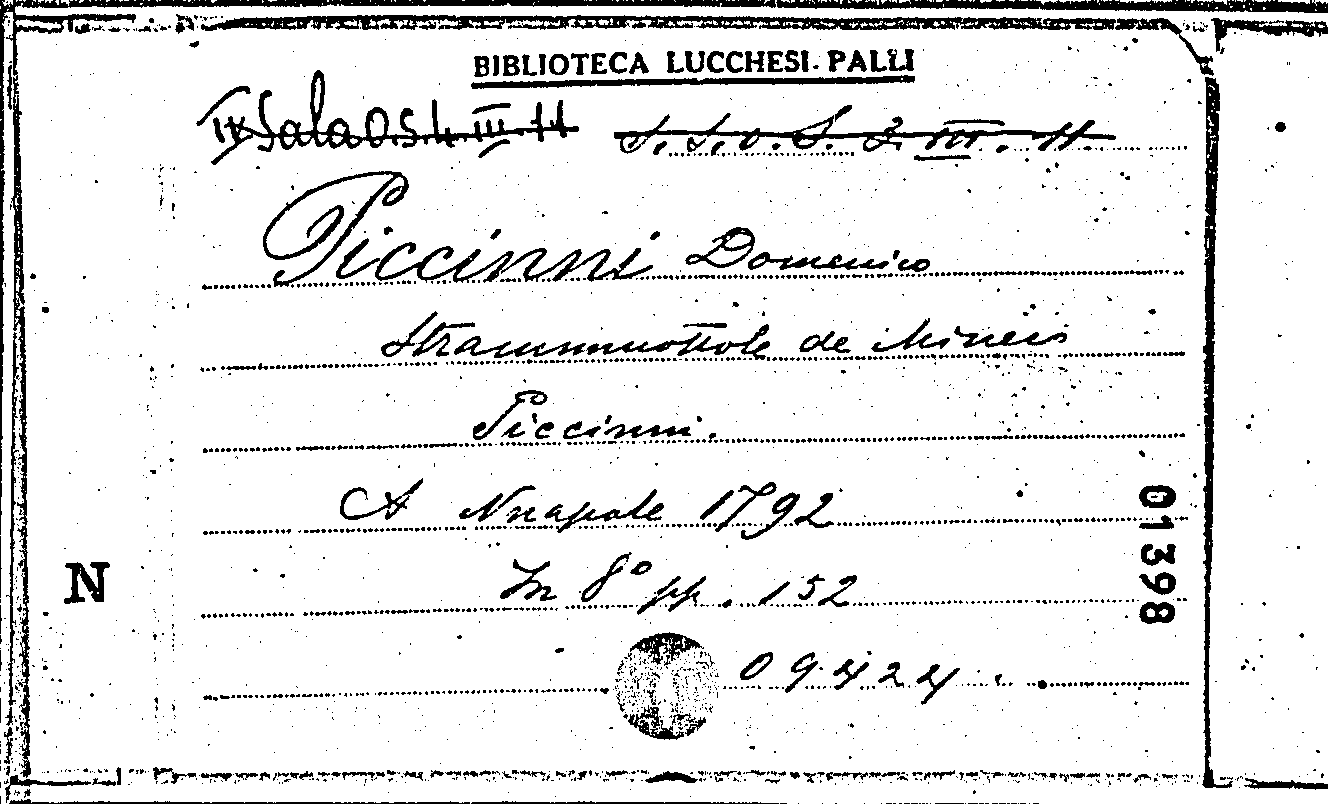 BIBLIOTECA LUCCHESI-PALLI
IX Sala O.S.4.III.11 S. S. O. S. 3. III. 11.
Piccinni Domenico
Strammuottole de Mineco
Piccinni.
A Nnapole 1792
In 8° pp. 152
09424.
N
01398